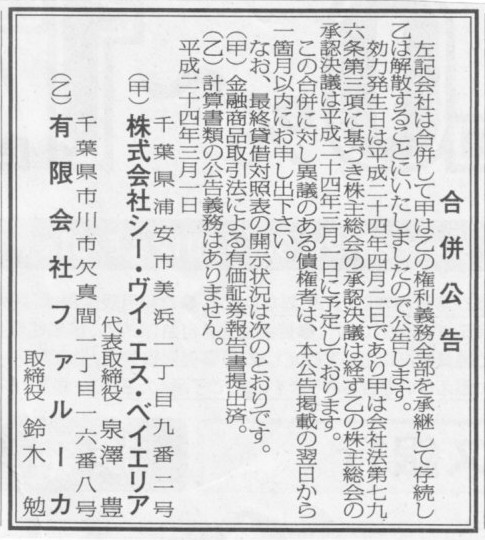 合併公告
左記会社は合併して甲は乙の権利義務全部を承継して存続し
乙は解散することにいたしましたので公告します。
効力発生日は平成二十四年四月二日であり甲は会社法第七九
六条第三項に基づき株主総会の承認決議は経ず乙の株主総会の
承認決議は平成二十四年三月一日に予定しております。
この合併に対し異議のある債権者は、本公告掲載の翌日から
一箇月以内にお申し出下さい。
なお、最終貸借対照表の開示状況は次のとおりです。
(甲)金融商品取引法による有価証券報告書提出済。
(乙)計算書類の公告義務はありません。
平成二十四年三月一日
千葉県浦安市美浜一丁目九番二号
(甲)株式会社シー・ヴイ・エス・ベイエリア
代表取締役 泉澤 豊
千葉県市川市欠真間一丁目一六番八号
(乙)有限会社ファルーカ
取締役 鈴木 勉